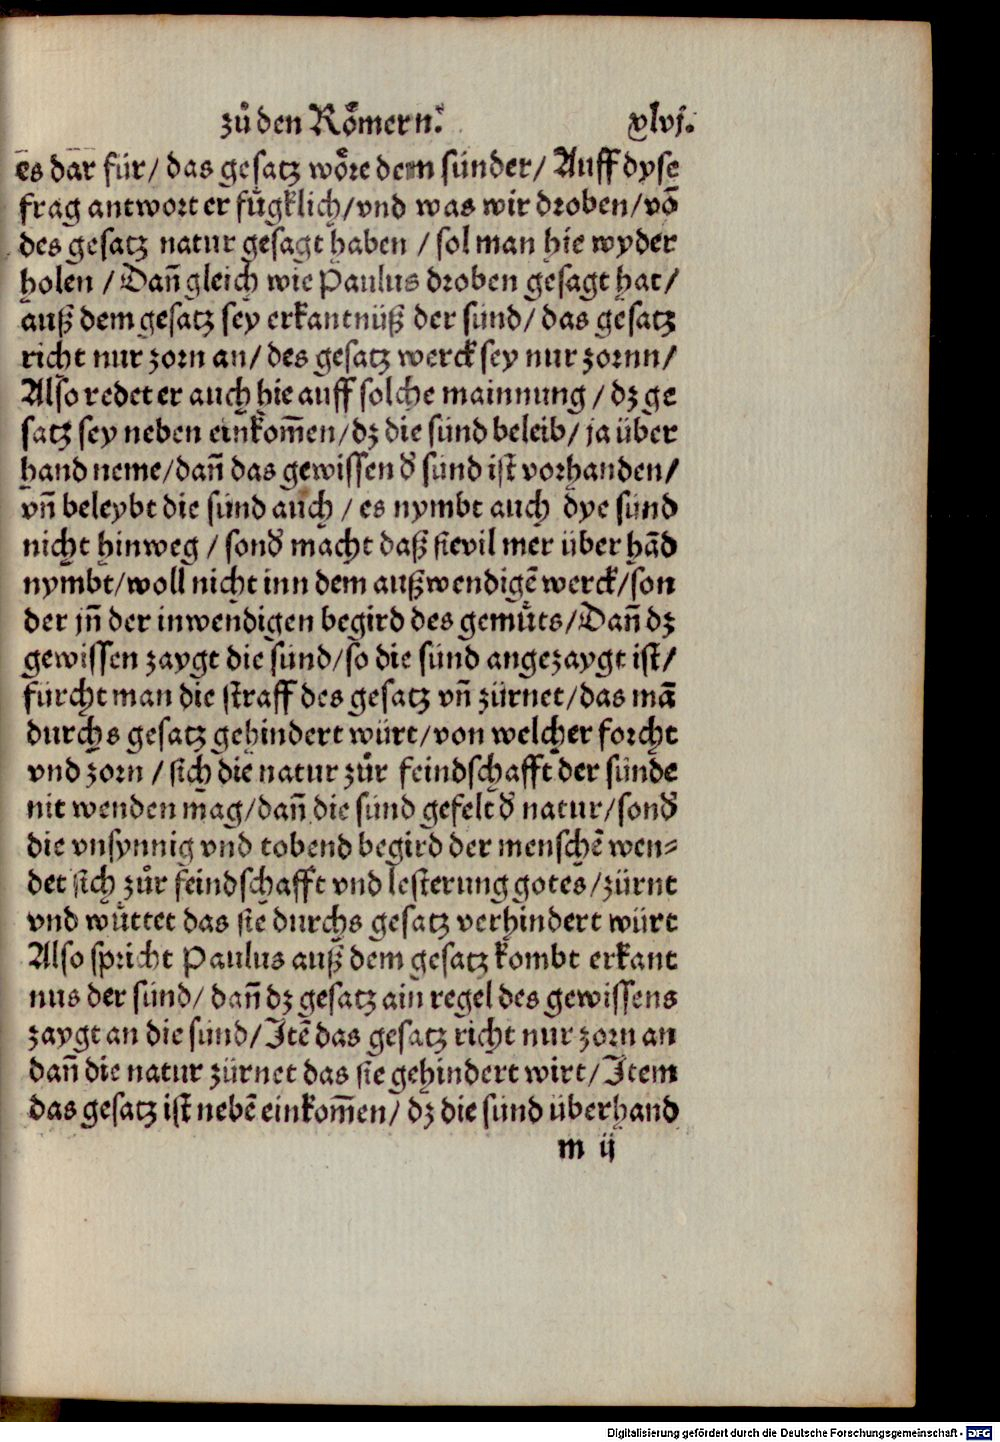 zuͦ den Roͤmern. xlvj.
es dar für/ das gesatz woͤre dem sünder/ Auff dyse
frag antwort er fuͤgklich/vnd was wir droben/võ
des gesatz natur gesagt haben /sol man hie wyder
holen /Dañ gleich wie Paulus droben gesagt hat/
auß dem gesatz sey erkantnüß der sünd/ das gesatz
richt nur zorn an/ des gesatz werck sey nur zornn/
Also redet er auch hie auff solche mainnung /dz ge
satz sey neben einkom̃en/dz die sünd beleib/ ja über
hand neme/dañ das gewissen ď sünd ist vorhanden/
vñ beleybt die sünd auch / es nymbt auch dye sünd
nicht hinweg / sonď macht daß sie vil mer über hãd
nymbt/woll nicht inn dem außwendigẽ werck/son
der jñ der inwendigen begird des gemuͤts/Dañ dz
gewissen zaygt die sünd/so die sünd angezaygt ist/
fürcht man die straff des gesatz vñ zürnet/das mã
durchs gesatz gehindert würt/von welcher forcht
vnd zorn /sich die natur zuͦr feindschafft der sünde
nit wenden mag/dañ die sünd gefelt ď natur/sonď
die vnsynnig vnd tobend begird der menschẽ wen⸗
det sich zuͦr feindschafft vnd lesterung gotes/zürnt
vnd wuͤttet das sie durchs gesatz verhindert würt
Also spricht Paulus auß dem gesatz kombt erkant
nus der sünd/ dañ dz gesatz ain regel des gewissens
zaygt an die sünd/Itẽ das gesatz richt nur zorn an
dañ die natur zürnet das sie gehindert wirt/Item
das gesatz ist nebẽ einkom̃en/ dz die sünd überhand
m ij
Digitalisierung gefördert durch die Deutsche Forschungsgemeinschaft - DFG